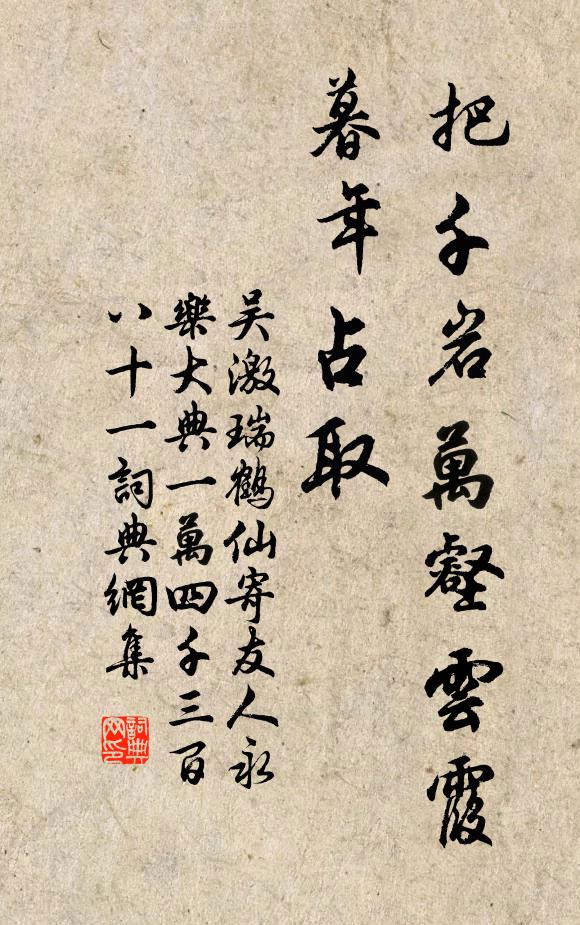 把千岩萬壑雲霞
暮年占取
吴激瑞鶴仙寄友人永
樂大典一萬四千三百
八十一詞典網集
詞典
网印